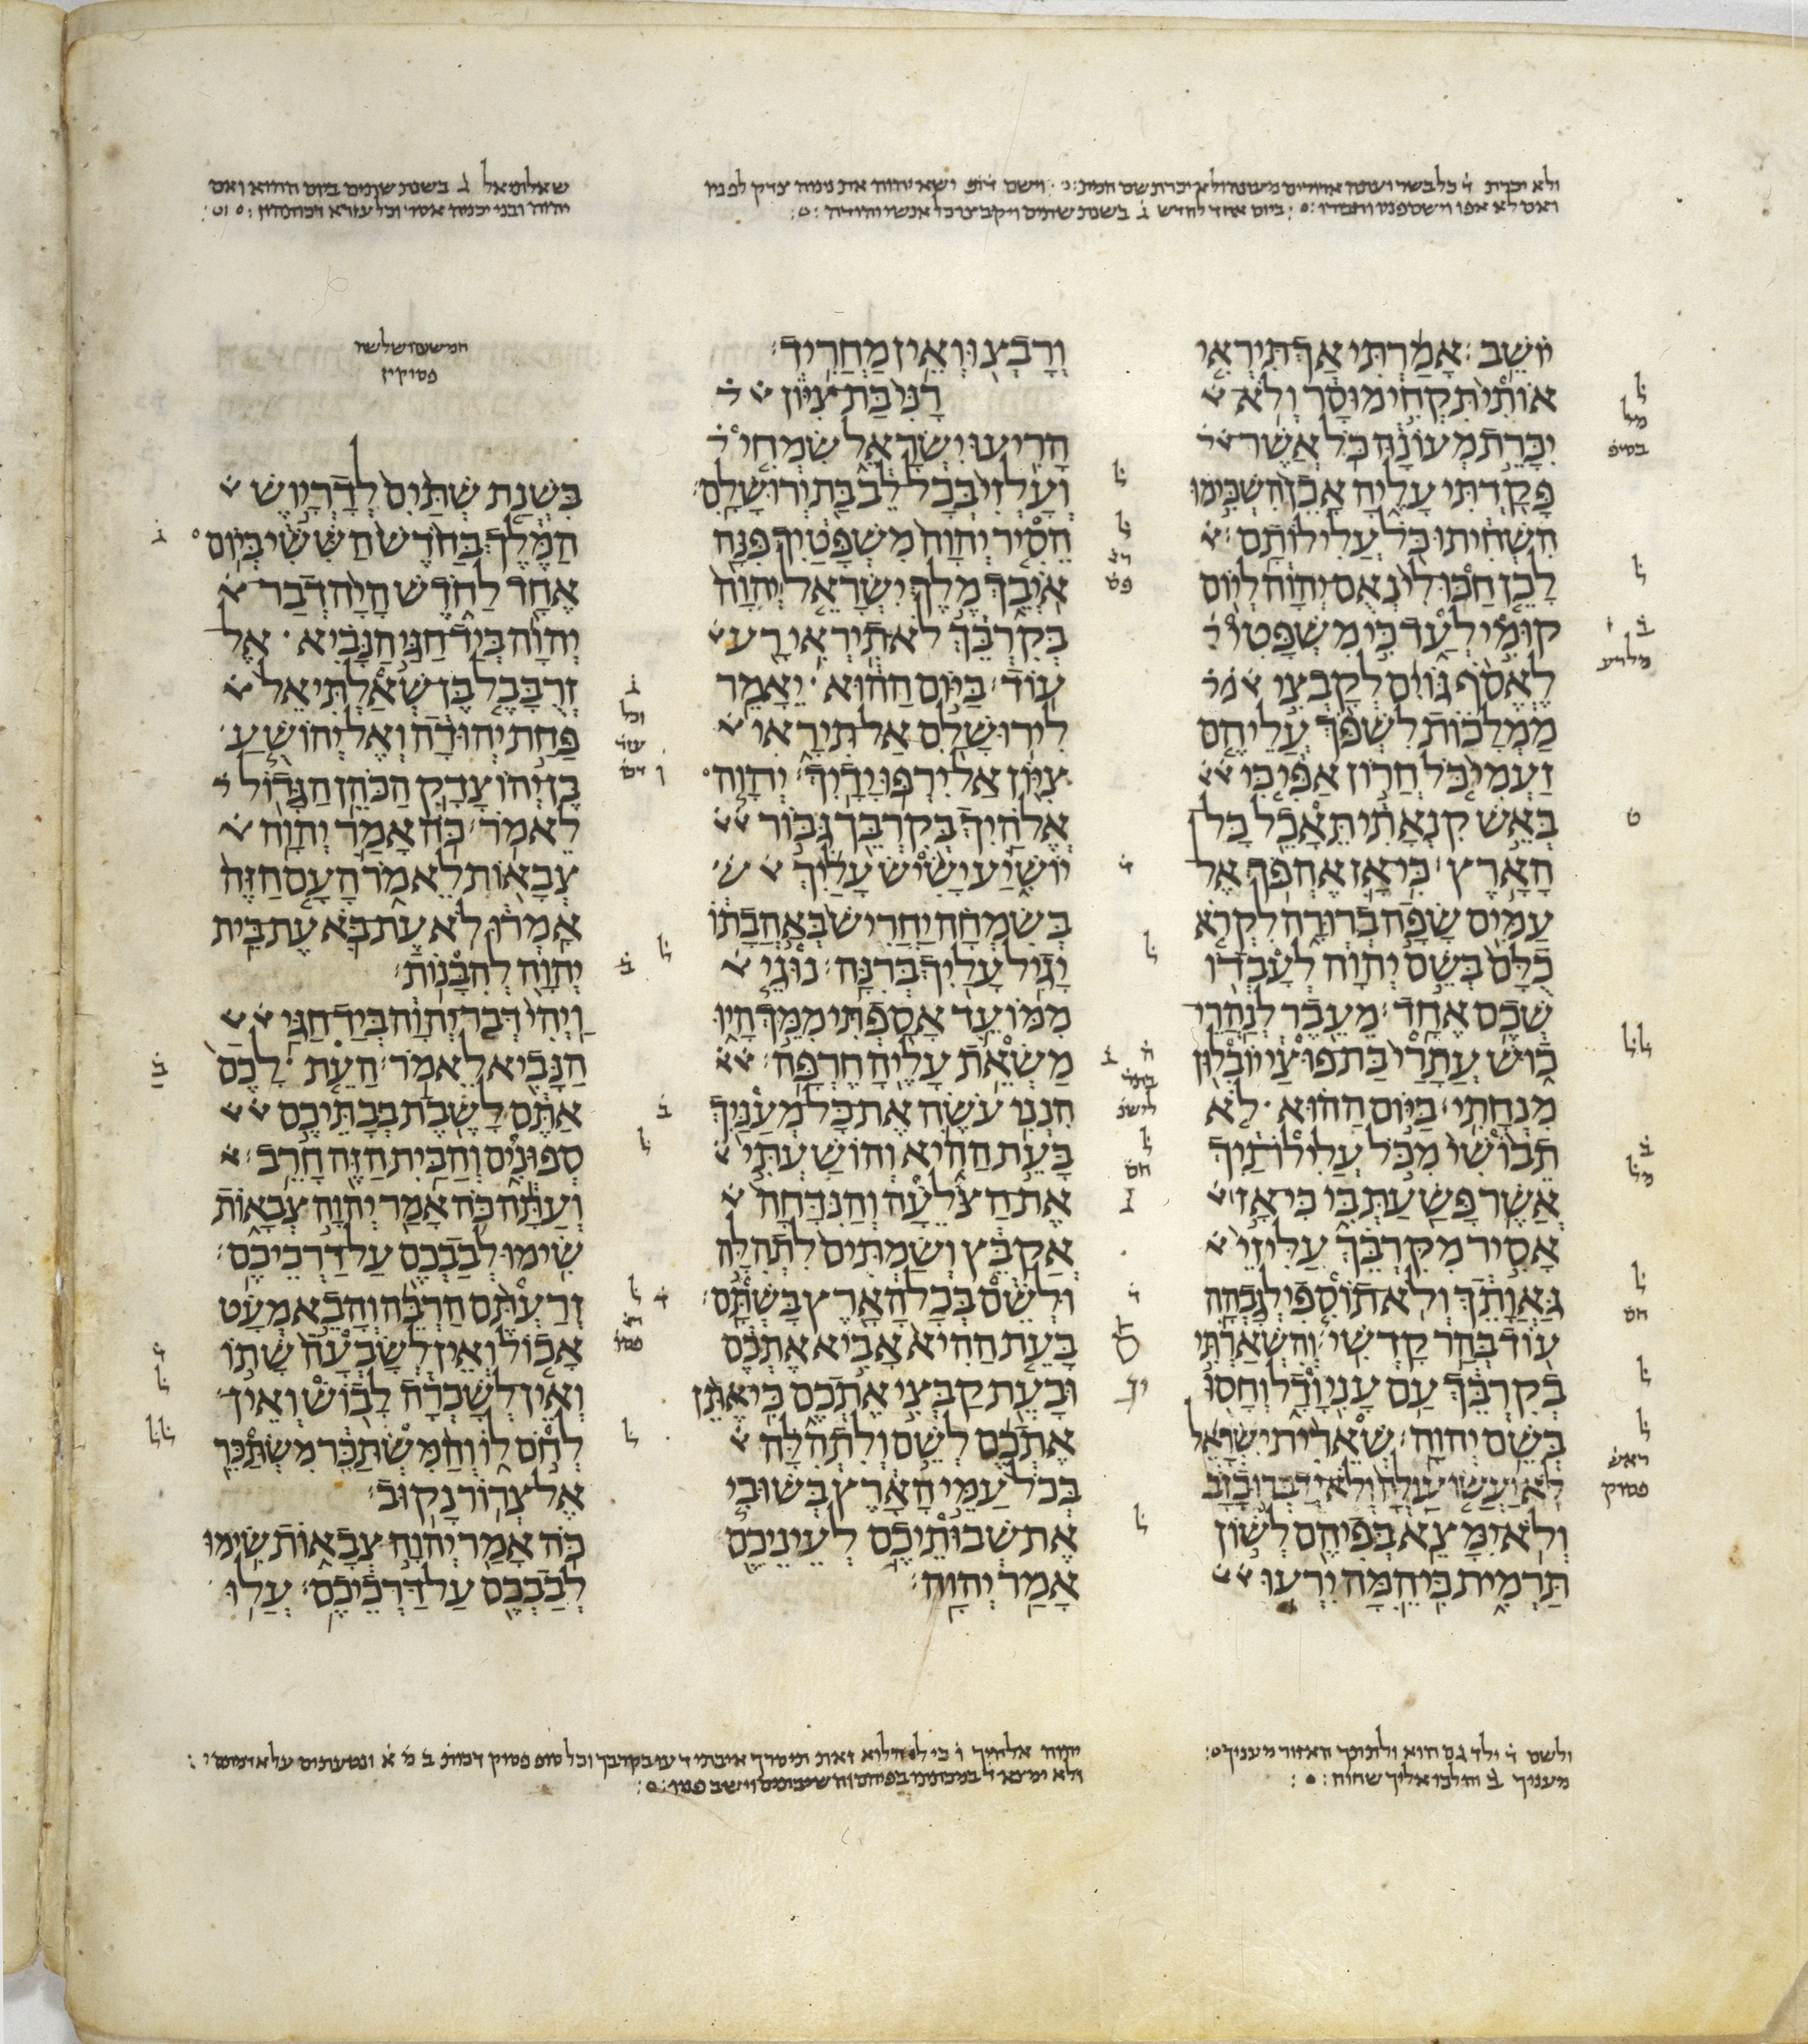 ביום אחד לחדש ג בשנת שתים ויקבצו כל אנשי יהודה
שאלתיאל ג בשנת שתים ביום ההוא נאם
יהוה ובני יכניה אסר וכל עזרא דכותהון
יוֹשֵׁב׃ אָמַרְתִּי אַךְ תִּירְאִי
אוֹתִי תִּקְחִי מוּסָר וְלֹא
יִכָּרֵת מְעוֹנָהּ כֹּל אֲשֶׁר
פָּקַדְתִּי עָלֶיהָ אָכֵן הִשְׁכִּימוּ
הִשְׁחִיתוּ כֹּל עֲלִילוֹתָם׃
לָכֵן חַכּוּ לִי נְאֻם יְהוָה לְיוֹם
קוּמִי לְעַד כִּי מִשְׁפָּטִי
לֶאֱסֹף גּוֹיִם לְקָבְצִי
מַמְלָכוֹת לִשְׁפֹּךְ עֲלֵיהֶם
זַעְמִי כֹּל חֲרוֹן אַפִּי כִּי
בְּאֵשׁ קִנְאָתִי תֵּאָכֵל כָּל
הָאָרֶץ׃ כִּי אָז אֶהְפֹּךְ אֶל
עַמִּים שָׂפָה בְרוּרָה לִקְרֹא
כֻלָּם בְּשֵׁם יְהוָה לְעָבְדוֹ
שְׁכֶם אֶחָד׃ מֵעֵבֶר לְנַהֲרֵי
כוּשׁ עֲתָרַי בַּת פּוּצַי יוֹבִלוּן
מִנְחָתִי׃ בַּיּוֹם הַהוּא לֹא
תֵבוֹשִׁי מִכֹּל עֲלִילֹתַיִךְ
אֲשֶׁר פָּשַׁעַתְּ בִּי כִּי אָז
אָסִיר מִקִּרְבֵּךְ עַלִּיזֵי
גַּאֲוָתֵךְ וְלֹא תוֹסִפִי לְגָבְהָה
עוֹד בְּהַר קָדְשִׁי׃ וְהִשְׁאַרְתִּי
בְקִרְבֵּךְ עַם עָנִי וָדָל וְחָסוּ
בְּשֵׁם יְהוָה׃ שְׁאֵרִית יִשְׂרָאֵל
לֹא יַעֲשׂוּ עַוְלָה וְלֹא יְדַבְּרוּ כָזָב
וְלֹא יִמָּצֵא בְּפִיהֶם לְשׁוֹן
תַּרְמִית כִּי הֵמָּה יִרְעוּ
וְרָבְצוּ וְאֵין מַחֲרִיד׃
רָנִּי בַּת צִיּוֹן
הָרִיעוּ יִשְׂרָאֵל שִׂמְחִי
וְעָלְזִי בְּכָל לֵב בַּת יְרוּשָׁלִָם׃
הֵסִיר יְהוָה מִשְׁפָּטַיִךְ פִּנָּה
אֹיְבֵךְ מֶלֶךְ יִשְׂרָאֵל יְהוָה
בְּקִרְבֵּךְ לֹא תִירְאִי רָע
עוֹד׃ בַּיּוֹם הַהוּא יֵאָמֵר
לִירוּשָׁלִַם אַל תִּירָאִי
צִיּוֹן אַל יִרְפּוּ יָדָיִךְ׃ יְהוָה
אֱלֹהַיִךְ בְּקִרְבֵּךְ גִּבּוֹר
יוֹשִׁיעַ יָשִׂישׂ עָלַיִךְ
בְּשִׂמְחָה יַחֲרִישׁ בְּאַהֲבָתוֹ
יָגִיל עָלַיִךְ בְּרִנָּה׃ נוּגֵי
מִמּוֹעֵד אָסַפְתִּי מִמֵּךְ הָיוּ
מַשְׂאֵת עָלֶיהָ חֶרְפָּה׃
הִנְנִי עֹשֶׂה אֶת כָּל מְעַנַּיִךְ
בָּעֵת הַהִיא וְהוֹשַׁעְתִּי
אֶת הַצֹּלֵעָה וְהַנִּדָּחָה
אֲקַבֵּץ וְשַׂמְתִּים לִתְהִלָּה
וּלְשֵׁם בְּכָל הָאָרֶץ בָּשְׁתָּם׃
בָּעֵת הַהִיא אָבִיא אֶתְכֶם
וּבָעֵת קַבְּצִי אֶתְכֶם כִּי אֶתֵּן
אֶתְכֶם לְשֵׁם וְלִתְהִלָּה
בְּכֹל עַמֵּי הָאָרֶץ בְּשׁוּבִי
אֶת שְׁבוּתֵיכֶם לְעֵינֵיכֶם
אָמַר יְהוָה׃
חמשים ושלשה
פסוקין
בִּשְׁנַת שְׁתַּיִם לְדָרְיָוֶשׁ
הַמֶּלֶךְ בַּחֹדֶשׁ הַשִּׁשִּׁי בְּיוֹם
אֶחָד לַחֹדֶשׁ הָיָה דְבַר
יְהוָה בְּיַד חַגַּי הַנָּבִיא אֶל
זְרֻבָּבֶל בֶּן שְׁאַלְתִּיאֵל
פַּחַת יְהוּדָה וְאֶל יְהוֹשֻׁעַ
בֶּן יְהוֹצָדָק הַכֹּהֵן הַגָּדוֹל
לֵאמֹר׃ כֹּה אָמַר יְהוָה
צְבָאוֹת לֵאמֹר הָעָם הַזֶּה
אָמְרוּ לֹא עֶת בֹּא עֶת בֵּית
יְהוָה לְהִבָּנוֹת׃
וַיְהִי דְּבַר יְהוָה בְּיַד חַגַּי
הַנָּבִיא לֵאמֹר׃ הַעֵת לָכֶם
אַתֶּם לָשֶׁבֶת בְּבָתֵּיכֶם
סְפוּנִים וְהַבַּיִת הַזֶּה חָרֵב׃
וְעַתָּה כֹּה אָמַר יְהוָה צְבָאוֹת
שִׂימוּ לְבַבְכֶם עַל דַּרְכֵיכֶם׃
זְרַעְתֶּם הַרְבֵּה וְהָבֵא מְעָט
אָכוֹל וְאֵין לְשָׂבְעָה שָׁתוֹ
וְאֵין לְשָׁכְרָה לָבוֹשׁ וְאֵין
לְחֹם לוֹ וְהַמִּשְׂתַּכֵּר מִשְׂתַּכֵּר
אֶל צְרוֹר נָקוּב׃
כֹּה אָמַר יְהוָה צְבָאוֹת שִׂימוּ
לְבַבְכֶם עַל דַּרְכֵיכֶם׃ עֲלוּ
ולשם ד ילד גם הוא
מעניך ב והלכו אליך שחוח